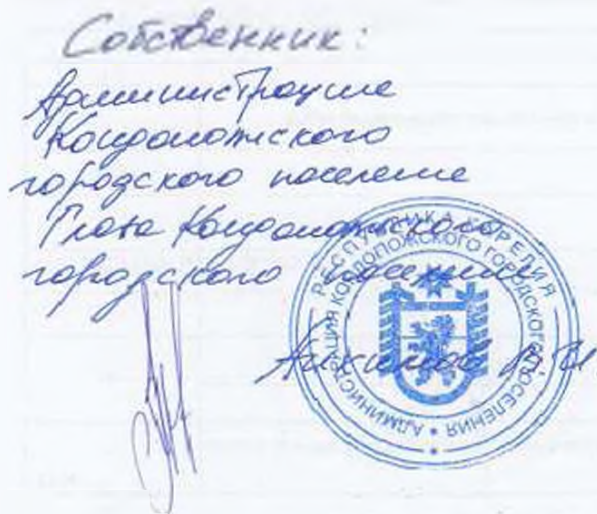 Собственник:
Администрация
Кондопожского
городского поселение
Глава Кондопожского
городского поселения
РЕСПУБЛИКА КАРЕЛИЯ
АДМИНИСТРАЦИЯ КОНДОПОЖСКОГО ГОРОДСКОГО ПОСЕЛЕНИЯ